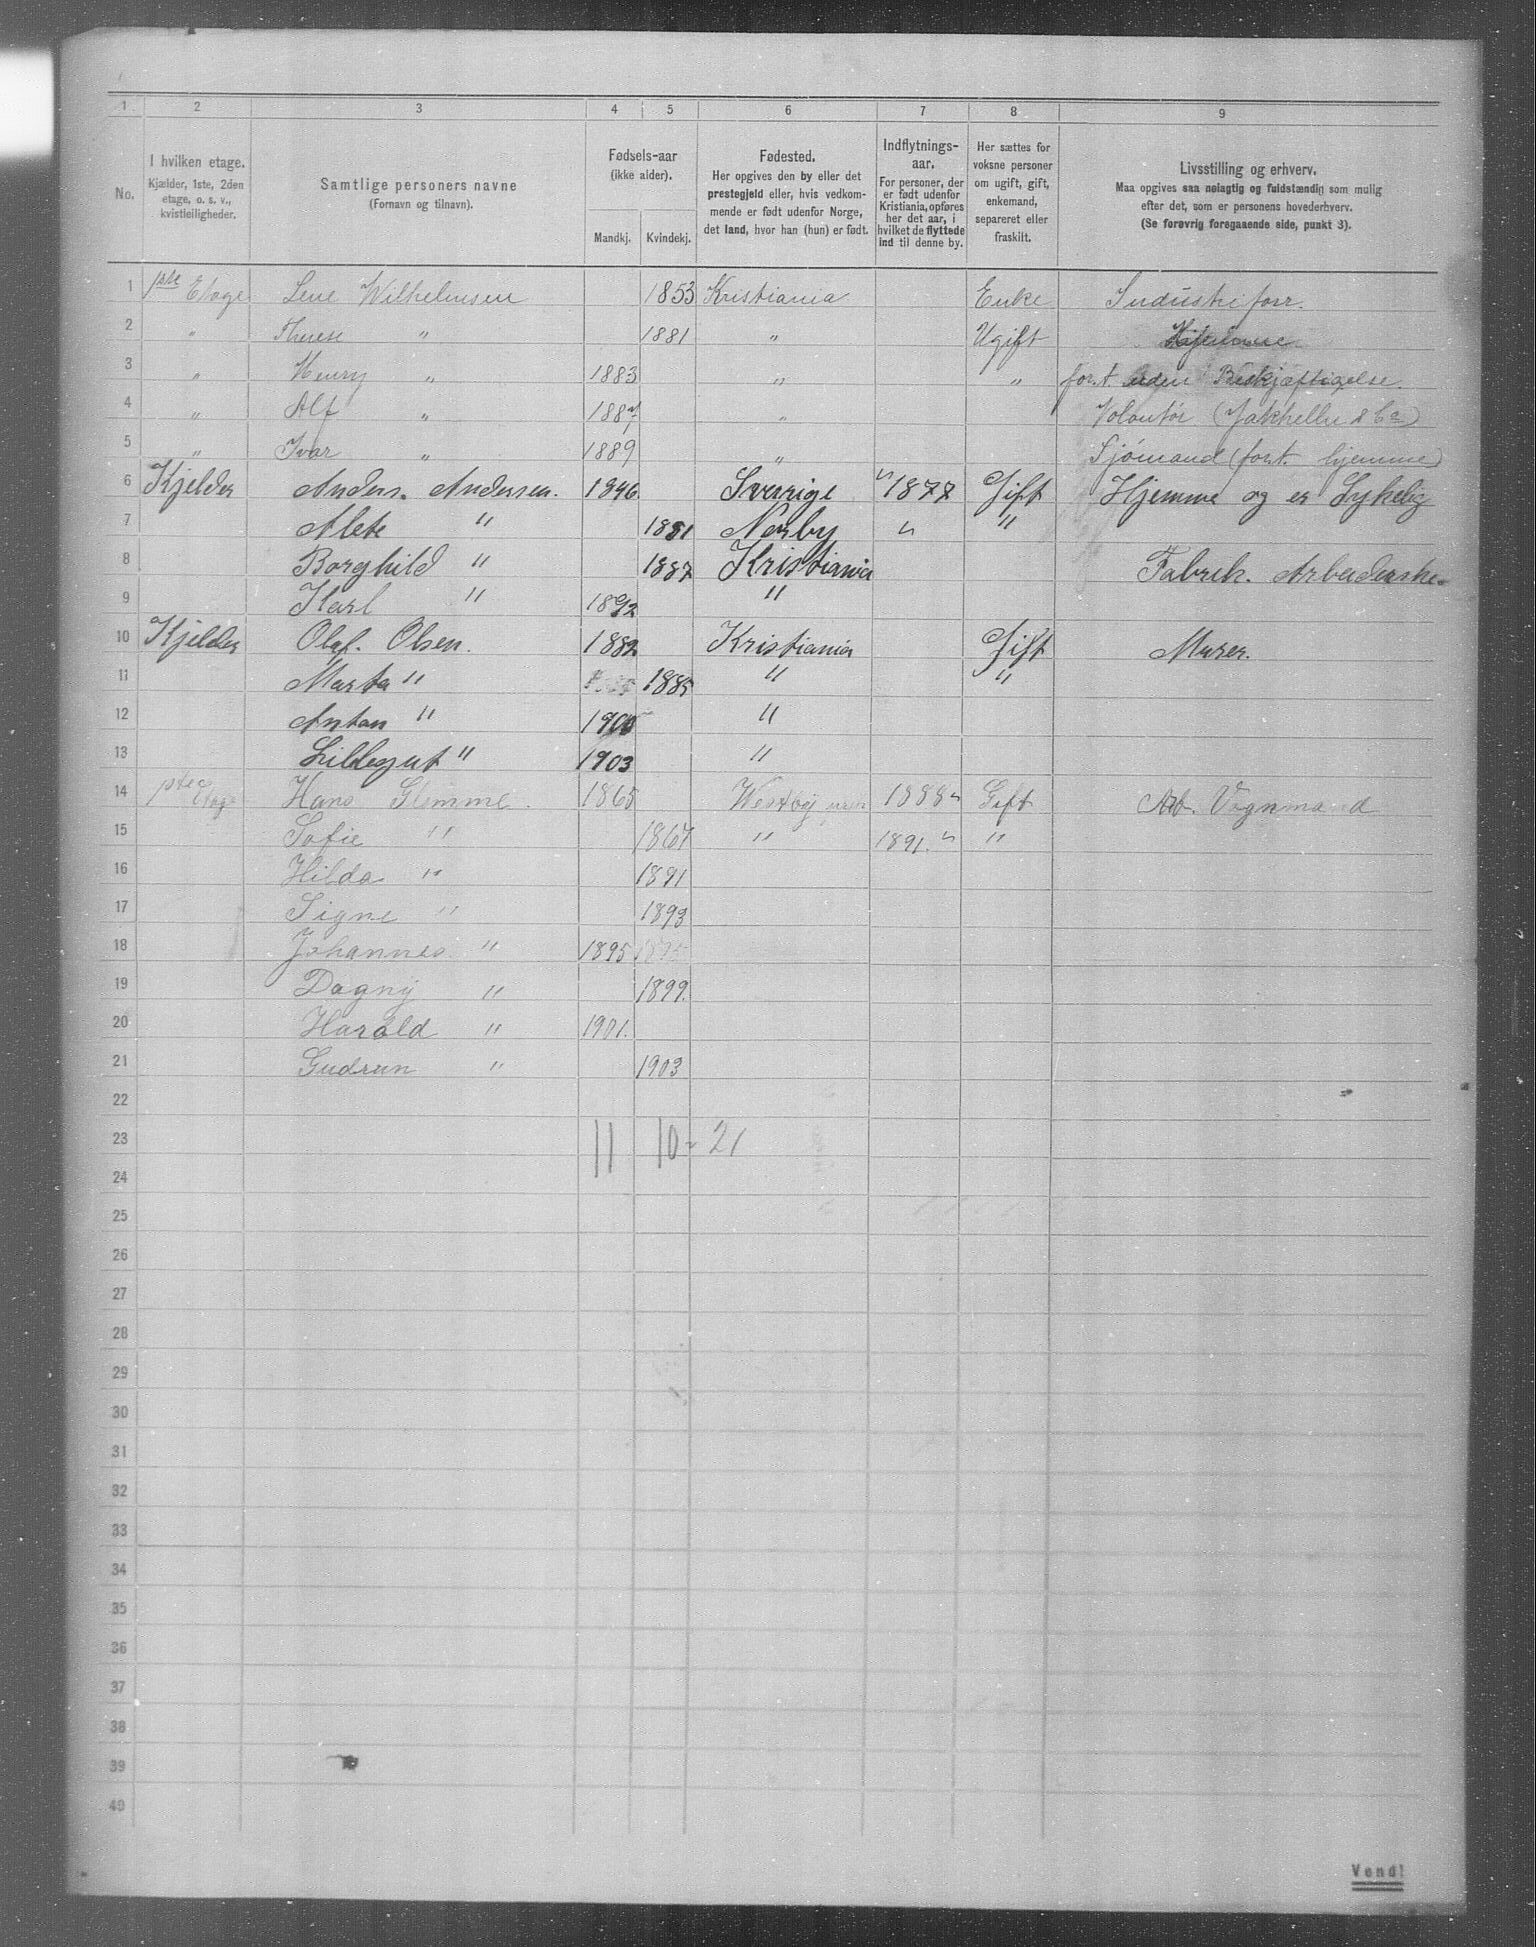 1 2 3 4 5 6 7 8 9
No.
I hvilken etage.
Kjælder, 1ste, 2den
etage, o. s. v.,
kvistleiligheder.
Samtlige personers navne
(Fornavn og tilnavn).
Fødsels-aar
(ikke alder).
Mandkj. Kvindekj.
Fødested.
Her opgives den by eller det
prestegjeld eller, hvis vedkom-
mende er født udenfor Norge,
det land, hvor han (hun) er født.
Indflytnings-
aar.
For personer, der
er født udenfor
Kristiania, opføres
her det aar, i
hvilket de flyttede
ind til denne by.
Her sættes for
voksne personer
om ugift, gift,
enkemand,
separeret eller
fraskilt.
Livsstilling og erhverv.
Maa opgives saa nøiagtig og fuldstændig som mulig
efter det, som er personens hovederhverv.
(Se forøvrig foregaaende side, punkt 3).
1 1ste Etage Lene Wilhelmsen 1853 Kristiania Enke Industriforr.
2 " Therese " 1881 " Ugift Hjemme
3 " Henry " 1883 " " fort. uden Beskjæftigelse.
4 " Alf " 1887 " Volontør (Jakhelln & Co)
5 " Ivar " 1889 " Sjømand (fort. hjemme)
6 Kjelder Anders. Andersen. 1846 Sverrige 1877 Gift Hjemme og er Sykelig
7 Alete " 1851 Nerby " "
8 Borghild " 1887 Kristiania Fabrik. Arbeiderske.
9 Karl " 1892 "
10 Kjelder Olaf. Olsen. 1882 Kristiania Gift Murer.
11 Marta " 1885 " "
12 Anton " 1900 "
13 Lillegut " 1903 "
14 1ste Etage Hans Glemme. 1865 Westby 1888 Gift Arb. Vognmand
15 Sofie " 1867 " 1891. "
16 Hilda " 1891
17 Signe " 1893
18 Johannes. " 1895 1895
19 Dagny " 1899.
20 Harald " 1901.
21 Gudrun " 1903
22
23 11 10 - 21
24
25
26
27
28
29
30
31
32
33
34
35
36
37
38
39
40
Vend!